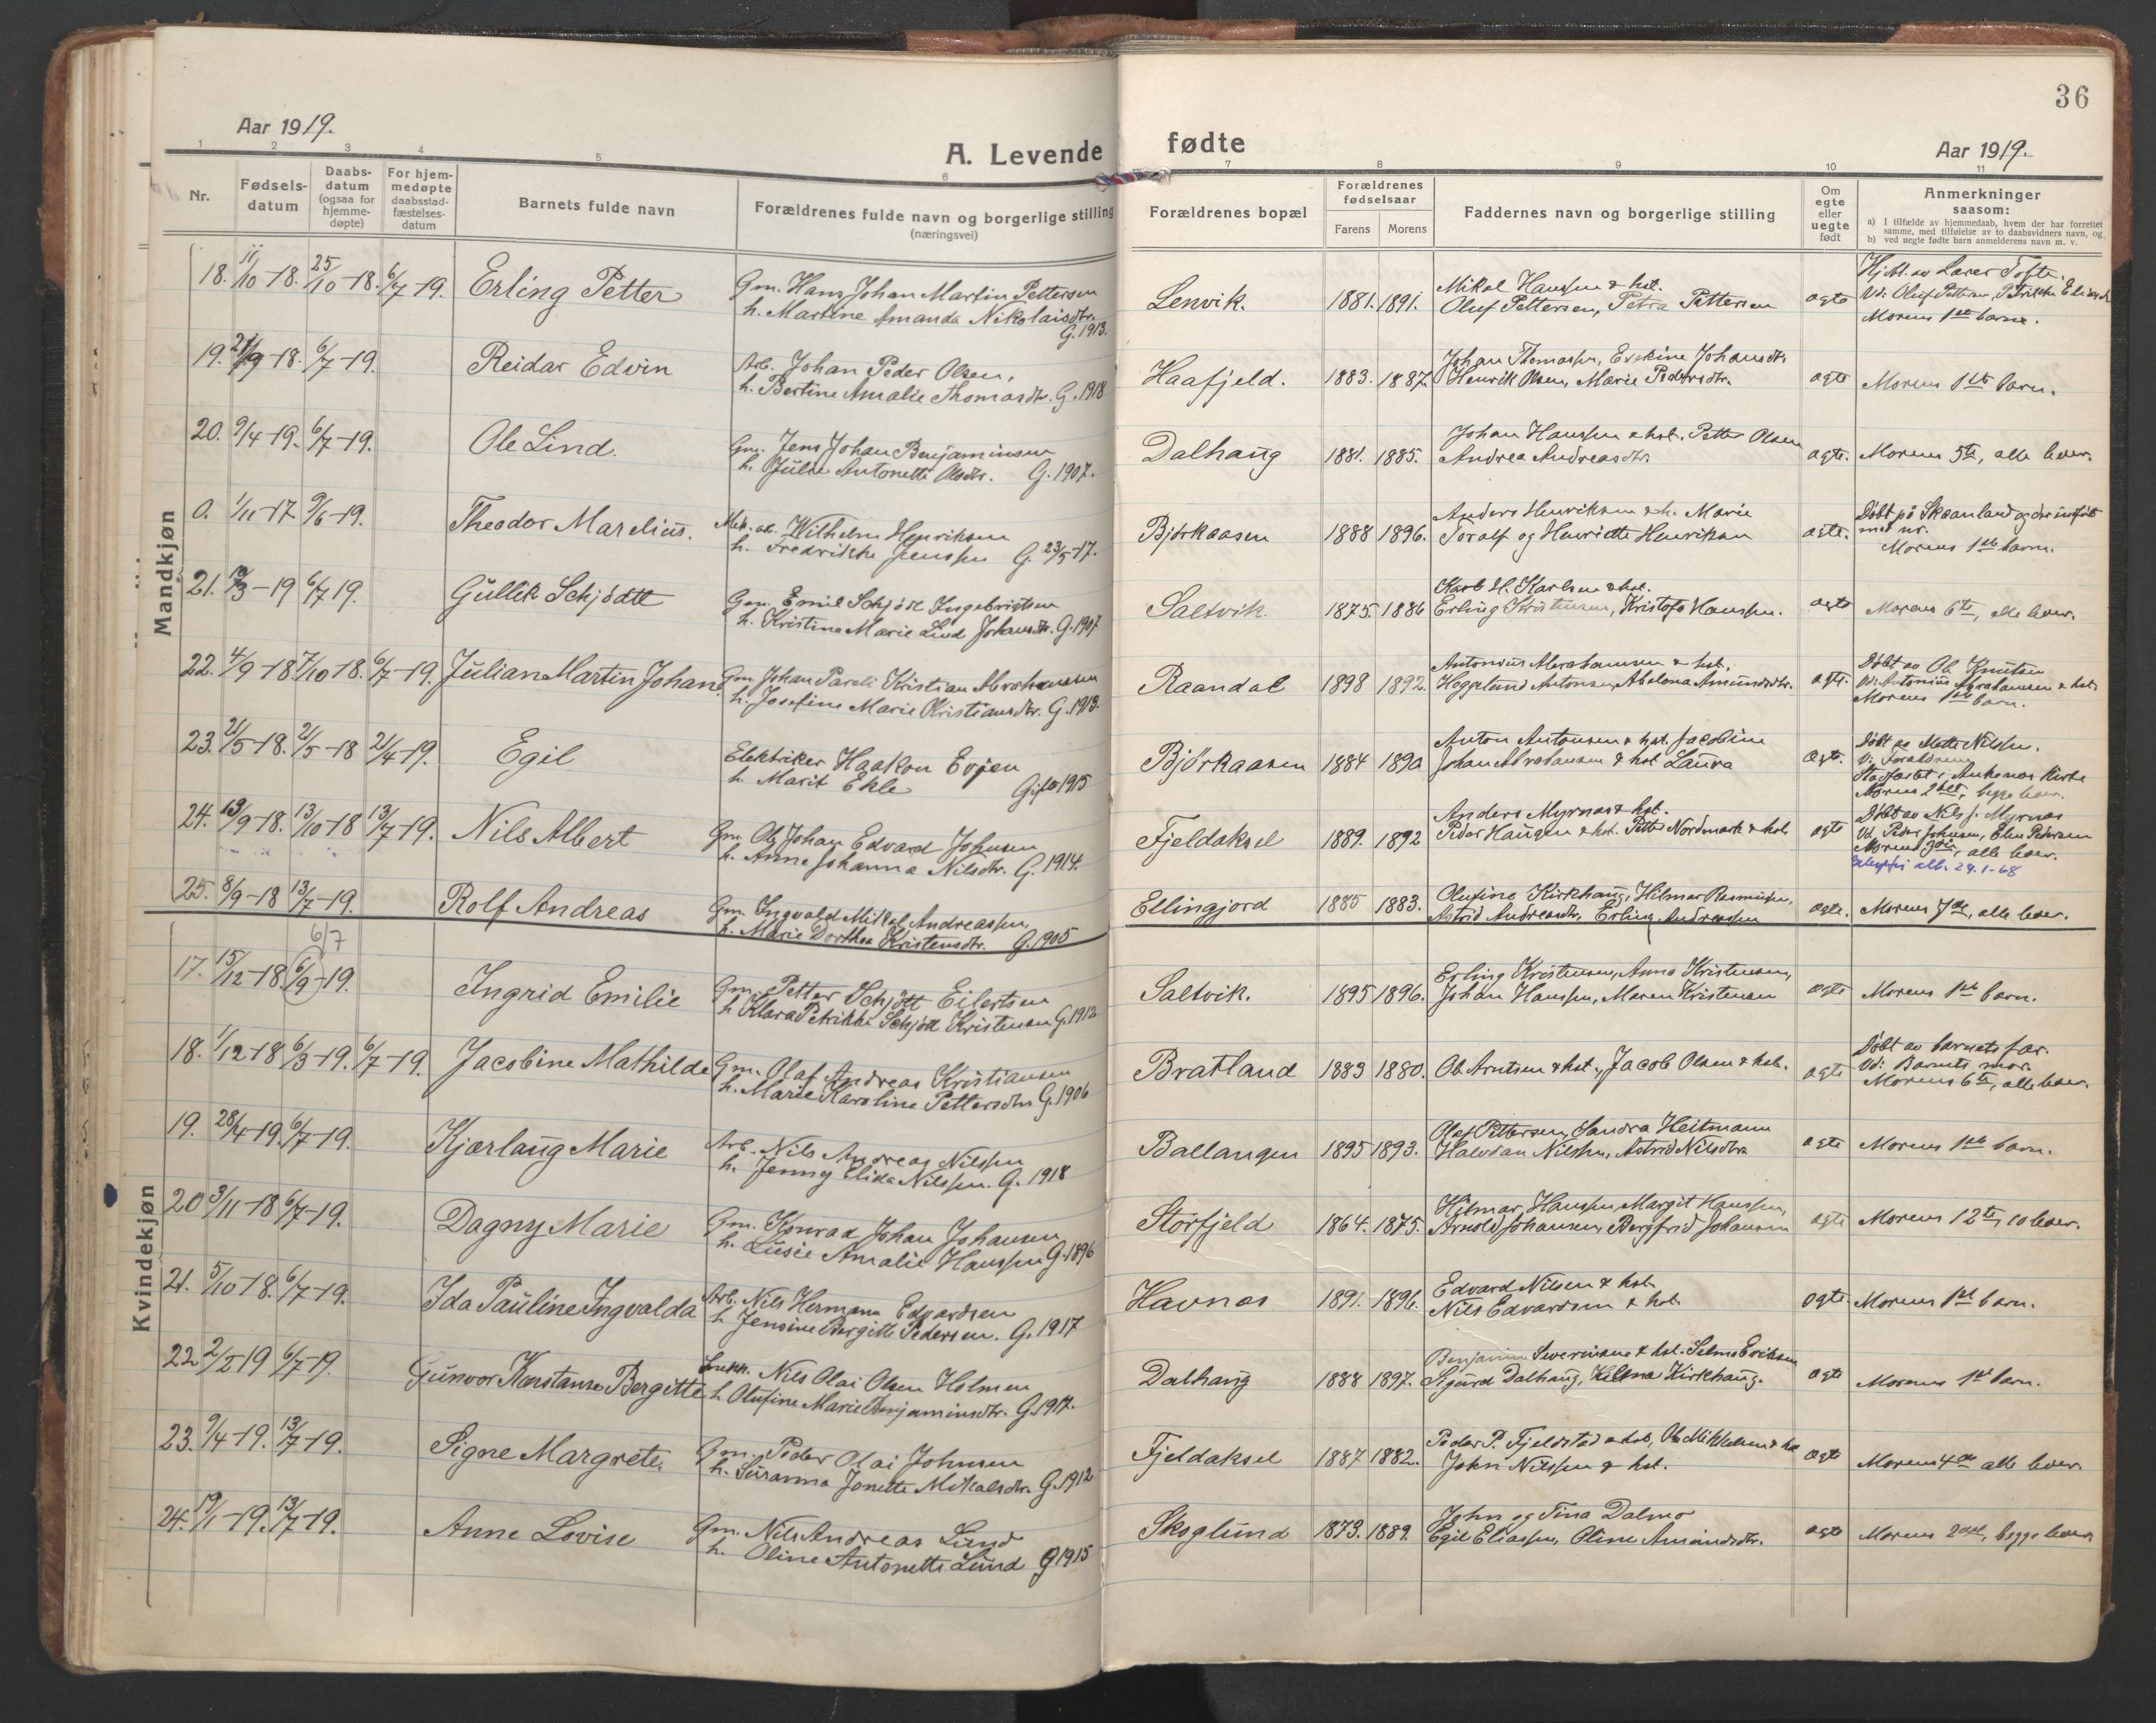 36
Aar 1919.
A. Levende fødte
Aar 1919.
1 2 3 4 5 6 7 8 9 10 11
Nr.
Fødsels-
datum
Daabs-
datum
(ogsaa for
hjemme-
døpte)
For hjem-
medøpte
daabsstad-
fæstelses-
datum
Barnets fulde navn
Forældrenes fulde navn og borgerlige stilling
(næringsvei)
Forældrenes bopæl
Forældrenes
fødselsaar
Farens Morens
Faddernes navn og borgerlige stilling
Om
egte
eller
uegte
født
Anmerkninger
saasom:
a) I tilfælde av hjemmedaab, hvem der har forrettet
samme, med tilføielse av to daabsvidners navn, og
b) ved uegte fødte barn anmelderens navn m. v.
Mandkjøn
18. 11/10-18. 25/10-18. 6/7-19. Erling Petter
Gm. Hans Johan Martin Pettersen
h. Martine Amanda Nikolaisdtr.
G. 1913.
Lenvik. 1881. 1891.
Mikal Hanssen & hst.
Oluf Pettersen, Petra Pettersen
egte
Hj.dbt. av Lærer Tofte.
Vd: Oluf Pettersen, Petrikke
Morens 1ste barn.
19. 21/9-18. 6/7-19. Reidar Edvin
Arb. Johan Peder Olsen,
h. Bertine Amalie Thomasdtr. G. 1918
Haafjeld. 1883. 1887.
Johan Thomassen, Johansdtr.
Henrik Olsen, Marie Pedersdtr.
egte Morens 1ste barn.
20. 9/4-19. 6/7-19. Ole Lind.
Gm. Jens Johan Benjaminsen
h. Julie Antonette Olsdtr. G. 1907.
Dalhaug 1881. 1885.
Johan Hanssen & hst. Petter Olsen
Andrea Andreasdtr.
egte. Morens 5te, alle lever.
0. 1/11-17 9/6-19. Theodor Marelius.
Mek. Wilhelm Henriksen
h. Fredrikke Jenssen G. 23/5-17.
Bjørkaasen 1888 1896.
Anders Henriksen & h. Marie
Toralf og Henriette Henriksen
egte.
Døbt på Skaanland og der indført
med nr.
Morens 1ste barn.
21. /3-19 6/7 19. Gullik Schjødtt
Gm. Emil Schjött Ingebrigtsen
h. Kristine Marie Lind Johansdtr. G. 1907
Saltvik. 1875. 1886
Karl H. Karlsen & hst.
Erling Kristensen, Kristofa Hanssen.
egte Morens 6te, alle lever.
22. 4/9-18. 7/10-18. 6/7-19. Julian Martin Johan
Gm. Johan Pareli Kristian Abrahamsen
h. Josefine Marie Kristiansdtr. G. 1913.
Raandal 1898 1892.
Antonius Abrahamsen & hst.
Heggelund Antonsen, Abelona Amundsdtr.
egte.
Døbt av Ole Knutsen
Vd: Antonius Abrahamsen & hst.
Morens 1ste barn.
23. 2/5-18. 2/5-18 21/4-19. Egil
Elektriker Haakon Evjen
h. Marit Ekle Gifte 1915
Bjørkaasen 1884 1890
Anton Antonsen & hst. Jacobine
Johan Abrahamsen & hst Laura
egte.
Døbt av Mette Nilssen.
V: Forældrene
Stadfæstet i Ankenes Kirke
Morens 2det, begge lever.
24. 13/9-18. 13/10-18 13/7-19. Nils Albert
Gm. Ole Johan Edvard Johnsen
h. Anne Johanna Nilsdtr. G. 1914.
Fjeldaksel 1889. 1892
Anders Myrnes & hst.
Peder Haugen & hst. Petter Nordmark & hst.
egte
Døbt av Nils J. Myrnes
Vd. Peder Johnsen, Elen Pedersen
Morens 3die, alle lever.
att. 29.1-68
25. 8/9-18 13/7-19. Rolf Andreas
Gm. Ingvald Mikal Andreassen,
h. Marie Dorthea Kristensdtr. G. 1905
Ellingjord 1885 1883.
Olufine Kirkhaug, Hilmar Rasmussen,
Astrid Andreasdtr, Erling Andreassen
egte. Morens 7de, alle lever.
Kvindekjøn
6/7
17. 15/12-18. 6/9-19. Ingrid Emilie
Gm. Petter Schjött Eilertsen
h Klara Petrikke Schjött Kristensen G. 1912
Saltvik. 1895 1896.
Erling Kristensen, Anna Kristensen,
Johan Hanssen, Maren Kristensen
egte Morens 1ste barn.
18. 1/12-18 6/3-19. 6/7-19. Jacobine Mathilde
Gm. Olaf Andreas Kristiansen
h. Marie Karoline Pettersdtr G. 1906
Bratland 1883 1880.
Ole Arntsen & hst., Jacob Olsen & hst.
egte
Døbt av barnets far.
Vd: Barnets mor.
Morens 6te, alle lever.
19. 28/4-19. 6/7-19. Kjærlaug Marie
Arb. Nils Andreas Nilssen
h. Jenny Elida Nilssen. G. 1918
Ballangen 1895 1893.
Olaf Pettersen, Sandra Heitmann
Halvdan Nilssen, Astrid Nilsdtr.
egte Morens 1ste barn.
20 3/11-18 6/7-19. Dagny Marie
Gm. Konrad Johan Johansen
h. Lusie Amalie Hanssen G. 1896
Storfjeld 1864. 1875.
Hilmar Hanssen, Margit Hanssen,
Arnold Johansen, Bergfrid Johansen
egte Morens 12te, 10 lever.
21. 5/10-18. 6/7-19. Ida Pauline Ingvalda
Arb. Nils Hermann Edvardsen
h Jensine Bergitte Pedersen. G. 1917
Havnes 1891. 1896.
Edvard Nilsen & hst
Nils Edvardsen & hst.
egte. Morens 1ste barn.
22 2/2 19 6/7-19. Gunvor Konstanse Bergitte
Snekk. Nils Olai Olsen Holmen
h Olufine Marie Benjaminsdtr. G. 1917.
Dalhaug 1888 1897.
Benjamin Severinsen & hst. Selma Eriksen
Sigurd Dalhaug, Helma Kirkhaug.
egte Morens 1ste barn.
23. 9/4-19. 13/7-19. Signe Margrete.
Gm. Peder Olai Johnsen
h. Susanna Jonette Mikalsdtr. G. 1912
Fjeldaksel 1887 1882.
Peder P. Fjeldstad & hst, Ole Mikkelsen & hst
John Nilssen & hst.
egte Morens 4de alle lever.
24. 19/1-19. 13/7-19. Anne Lovise
Gm. Nils Andreas Lund
h. Oline Antonette Lund G 1915
Skoglund 1873. 1889.
John og Tina Dalmo
Egil Eliassen, Oline Amundsdtr.
egte Morens 2det, begge lever.